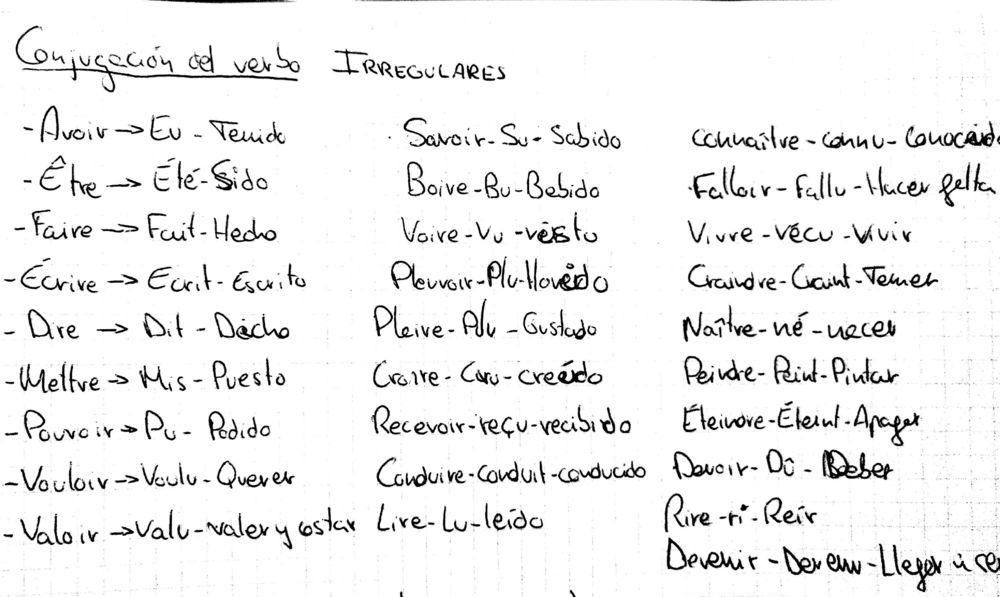 Conjugación del verbo IRREGULARES
- Avoir → Eu - Tenido
- Être → Été - Sido
- Faire → Fait - Hecho
- Écrire → Ecrit - Escrito
- Dire → Dit - Dicho
- Mettre → Mis - Puesto
- Pouvoir → Pu - Podido
- Vouloir → Voulu - Querer
- Valoir → Valu - valer y costar
Savoir - Su - Sabido
Boire - Bu - Bebido
Voire - Vu - visto
Pleuvoir - Plu - llovido
Pleire - Plu - Gustado
Croire - Cru - creído
Recevoir - reçu - recibido
Conduire - conduit - conducido
Lire - Lu - leído
Connaître - connu - Conocido
Falloir - Fallu - Hacer falta
Vivre - vécu - vivir
Craindre - Craint - Temer
Naître - né - nacer
Peindre - Peint - Pintar
Éteindre - Éteint - Apagar
Devoir - Dû - Deber
Rire - ri - Reír
Devenir - Devenu - Llegar a ser